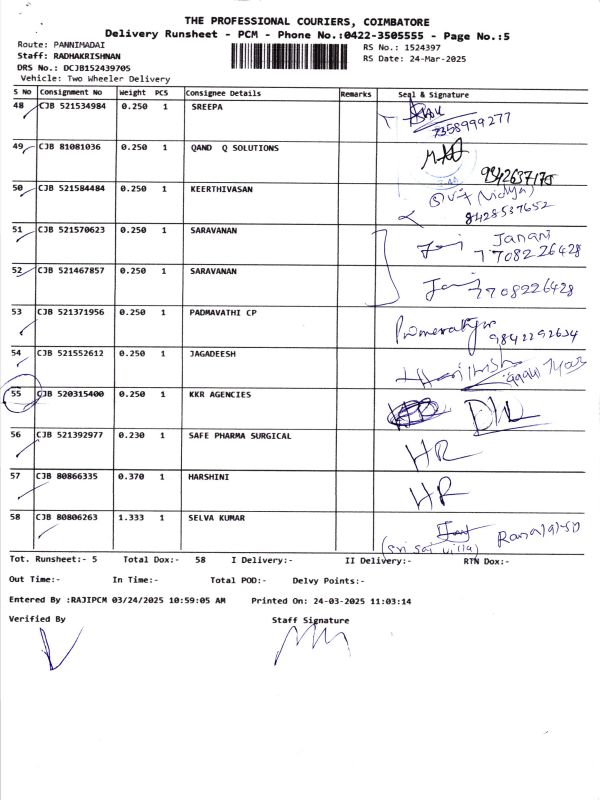 THE PROFESSIONAL COURIERS, COIMBATORE
Delivery Runsheet - PCM - Phone No.:0422-3505555 - Page No.:5
Route: PANNIMADAI RS No.: 1524397
Staff: RADHAKRISHNAN RS Date: 24-Mar-2025
DRS No.: DCJB152439705
Vehicle: Two Wheeler Delivery
S No Consignment No Weight PCS Consignee Details Remarks Seal & Signature
48 CJB 521534984 0.250 1 SREEPA
7358999277
49 CJB 81081036 0.250 1 QAND Q SOLUTIONS
9342637175
50 CJB 521584484 0.250 1 KEERTHIVASAN (Vidya)
8428537652
51 CJB 521570623 0.250 1 SARAVANAN Janani
7708226428
52 CJB 521467857 0.250 1 SARAVANAN
7708226428
53 CJB 521371956 0.250 1 PADMAVATHI CP
9842292634
54 CJB 521552612 0.250 1 JAGADEESH
55 CJB 520315400 0.250 1 KKR AGENCIES
56 CJB 521392977 0.230 1 SAFE PHARMA SURGICAL HR
57 CJB 80866335 0.370 1 HARSHINI HR
58 CJB 80806263 1.333 1 SELVA KUMAR
(Sri Sai Villa)
Tot. Runsheet:- 5 Total Dox:- 58 I Delivery:- II Delivery:- RTN Dox:-
Out Time:- In Time:- Total POD:- Delvy Points:-
Entered By :RAJIPCM 03/24/2025 10:59:05 AM Printed On: 24-03-2025 11:03:14
Verified By Staff Signature